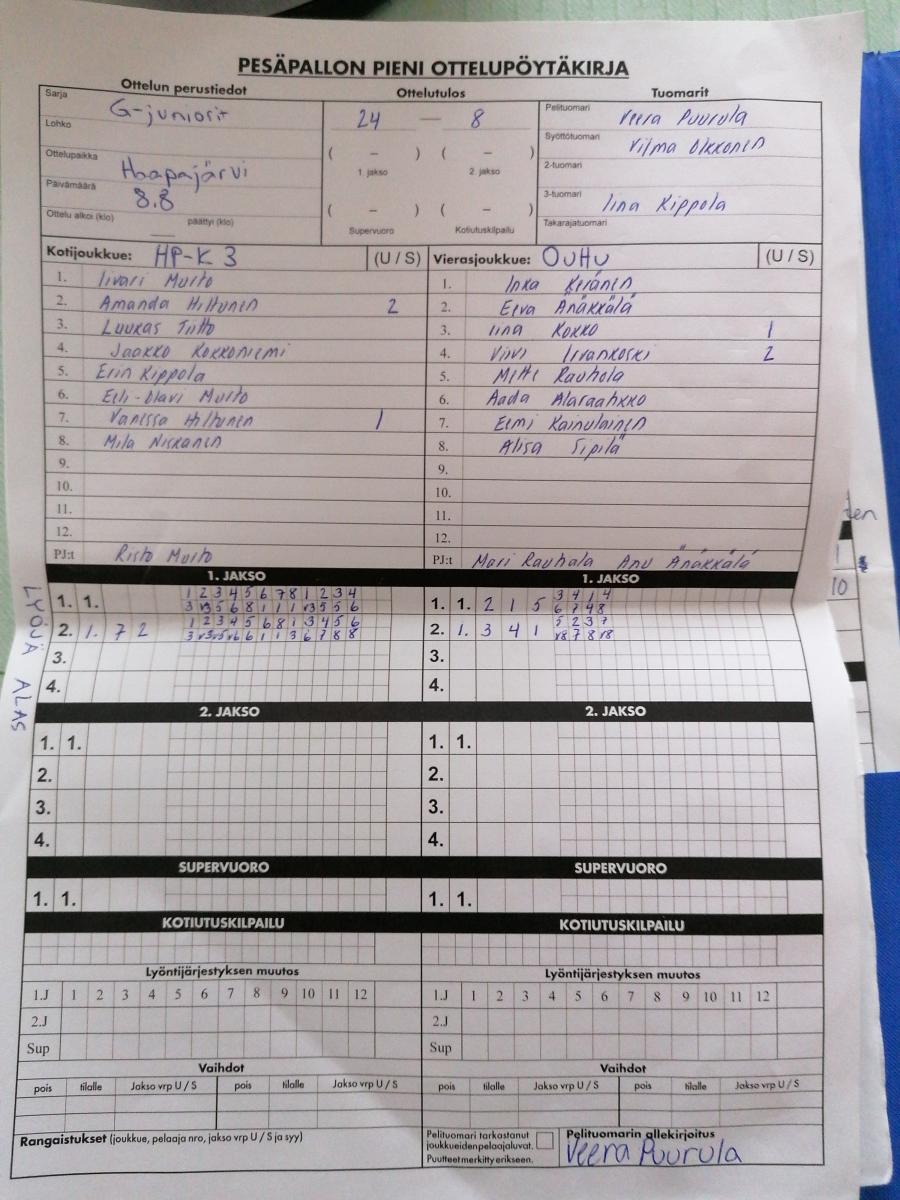 PESÄPALLON PIENI OTTELUPÖYTÄKIRJA
Ottelun perustiedot Ottelutulos Tuomarit
Sarja G-juniorit
Lohko
Ottelupaikka Haapajärvi
Päivämäärä 8.8
Ottelu alkoi (klo) päättyi (klo)
24 — 8
( – ) ( – )
1. jakso 2. jakso
( – ) ( – )
Supervuoro Kotiutuskilpailu
Pelituomari Veera Puurula
Syöttötuomari Vilma Okkonen
2-tuomari
3-tuomari Iina Kippola
Takarajatuomari
Kotijoukkue: HP-K 3 (U / S)
1. Iivari Muito
2. Amanda Hiltunen 2
3. Luukas Tiitto
4. Jaakko Kokkoniemi
5. Erin Kippola
6. Eeli-Olavi Muito
7. Vanessa Hiltunen 1
8. Mila Niskanen
9.
10.
11.
12.
PJ:t Risto Muito
Vierasjoukkue: OuHu (U / S)
1. Inka Keränen
2. Eeva Änäkkälä
3. Iina Kokko 1
4. Viivi Iivankoski 2
5. Matti Rauhala
6. Aada Alaraahkko
7. Eemi Kainulainen
8. Alisa Sipilä
9.
10.
11.
12.
PJ:t Mari Rauhala Anu Änäkkälä
LYÖJÄ ALAS
1. JAKSO
1 2 3 4 5 6 7 8 1 2 3 4
1. 1.
1 2 3 4 5 6 8 1 3 4 5 6
2. 1. 7 2
3.
4.
1. JAKSO
3 4 1 4
1. 1. 2 1 5 6 7 4 8
5 2 3 7
2. 1. 3 4 1
3.
4.
2. JAKSO
1. 1.
2.
3.
4.
2. JAKSO
1. 1.
2.
3.
4.
SUPERVUORO SUPERVUORO
1. 1. 1. 1.
KOTIUTUSKILPAILU KOTIUTUSKILPAILU
Lyöntijärjestyksen muutos Lyöntijärjestyksen muutos
1.J 1 2 3 4 5 6 7 8 9 10 11 12 1.J 1 2 3 4 5 6 7 8 9 10 11 12
2.J 2.J
Sup Sup
Vaihdot Vaihdot
pois tilalle Jakso vrp U / S pois tilalle Jakso vrp U / S pois tilalle Jakso vrp U / S pois tilalle Jakso vrp U / S
Rangaistukset (joukkue, pelaaja nro, jakso vrp U / S ja syy)
Pelituomari tarkastanut
joukkueiden pelaajaluvat.
Puutteet merkitty erikseen.
Pelituomarin allekirjoitus
Veera Puurula
10